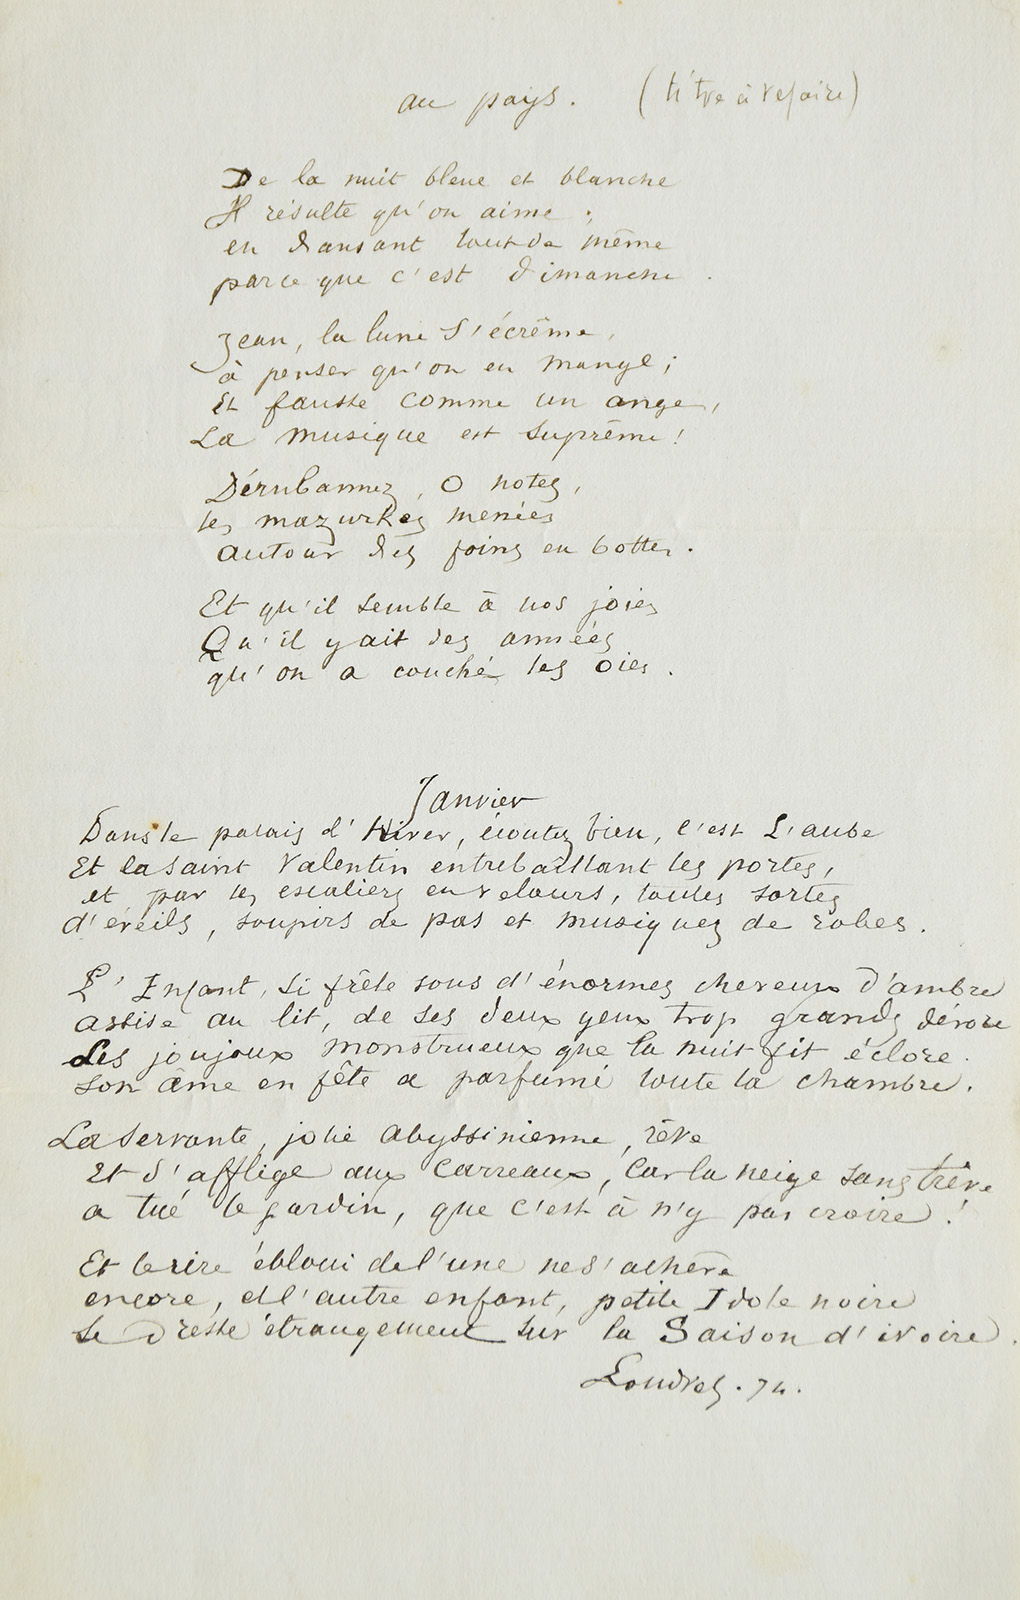 au pays. (titre à refaire)
De la nuit bleue et blanche
Il résulte qu'on aime ;
en dansant tout de même
parce que c'est dimanche.
Jean, la lune s'écrême,
à penser qu'on en mange ;
Et fauste comme un ange,
La musique est suprême !
Dérubannez, O notes,
les mazurkes menées
autour des foins en bottes.
Et qu'il semble à nos joies
Qu'il y ait des années
qu'on a couché les oies.
Janvier
Dans le palais d'Hiver, écoutez bien, c'est L'aube
Et la saint Valentin entrebaillant les portes,
et par les escaliers en velours, toutes sortes
d'éveils, soupirs de pas et musiques de robes.
L'Enfant, si frêle sous d'énormes cheveux d'ambre
assise au lit, de ses deux yeux trop grands dévore
Les joujoux monstrueux que la nuit fit éclore.
son âme en fête a parfumé toute la chambre.
La servante, jolie abyssinienne, rêve
Et s'afflige aux carreaux, car la neige sans trêve
a tué le jardin, que c'est à n'y pas croire !
Et le rire ébloui de l'une ne s'achève
encore, et l'autre enfant, petite Idole noire
se dresse étrangement sur la Saison d'ivoire.
Londres. 74.